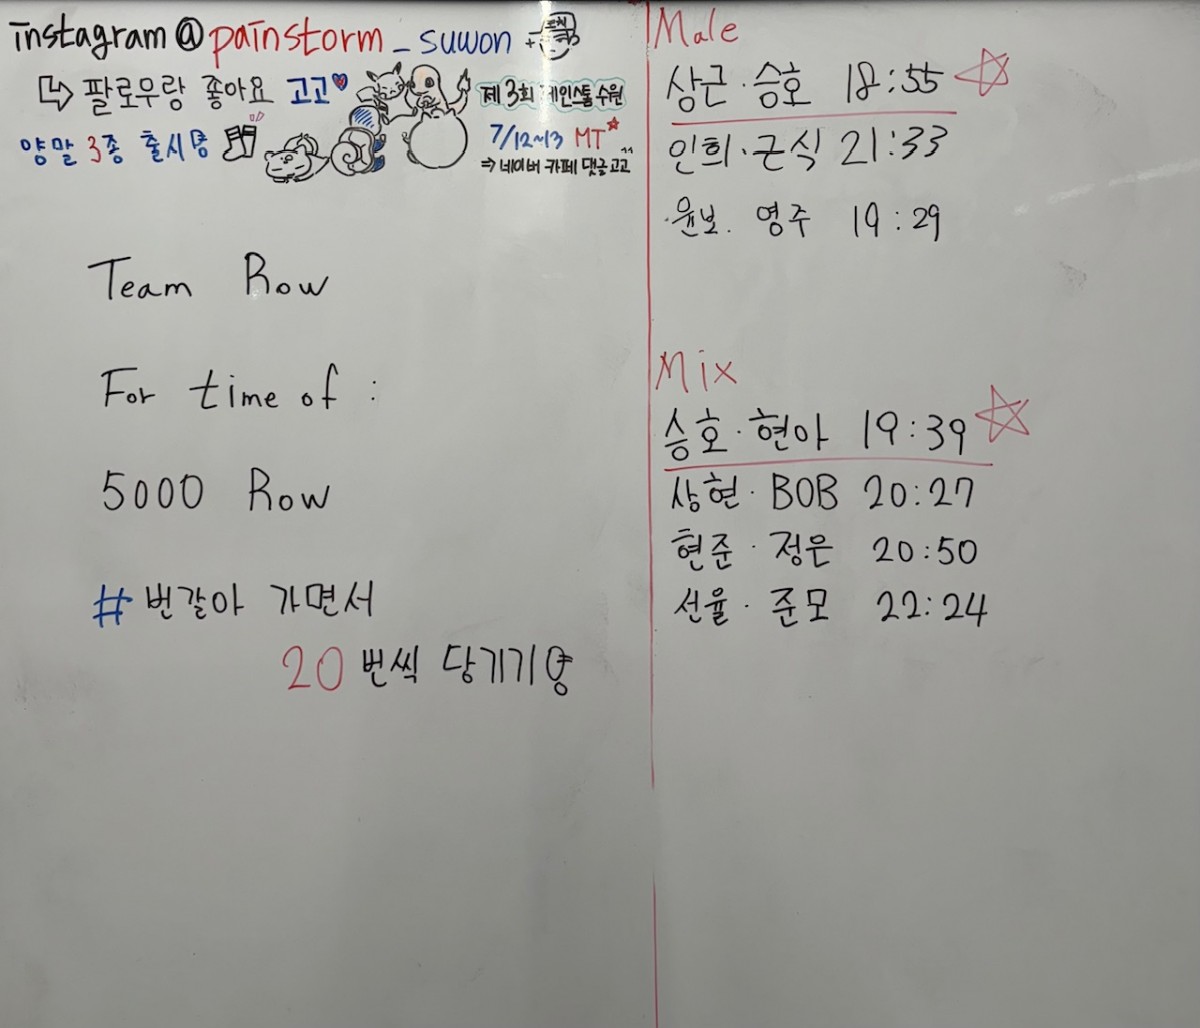 instagram@painstorm_suwon +
팔로우랑 좋아요 고고
양말 3종 출시용
제 3회 페인스톰 수원
7/12~13 MT
⇒ 네이버 카페 댓글고고
Team Row
For time of :
5000 Row
# 번갈아 가면서
20 번씩 당기기용
Male
상근 · 승호 18:55
인희 · 근식 21:33
· 윤보. 영주 19:29
Mix
승호 · 현아 19:39
상현 · BOB 20:27
현준 · 정은 20:50
선율 · 준모 22:24